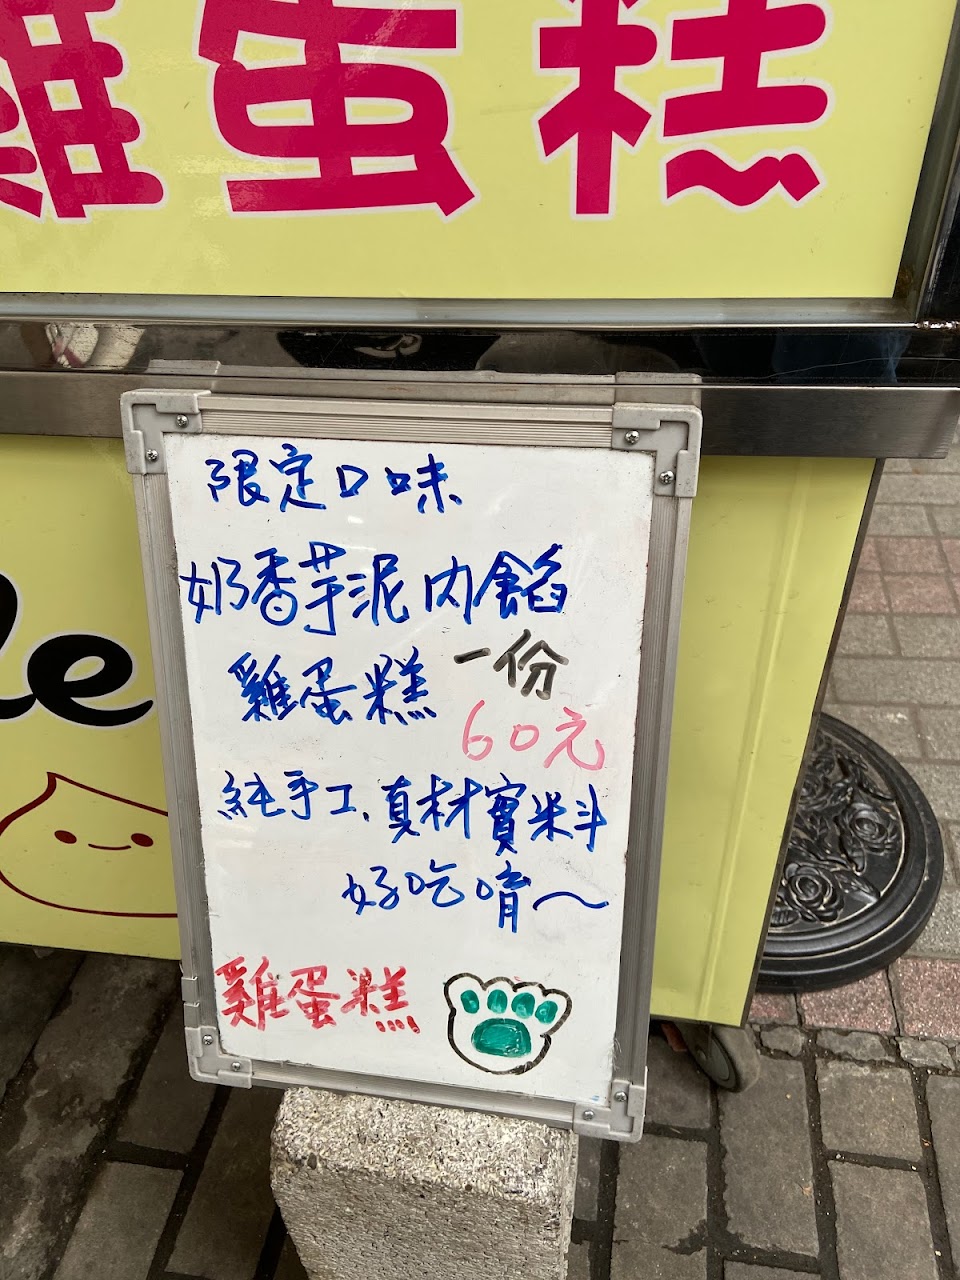 雞蛋糕
限定口味
奶香芋泥內餡
雞蛋糕 一份
60元
純手工、真材實料
好吃唷～
雞蛋糕